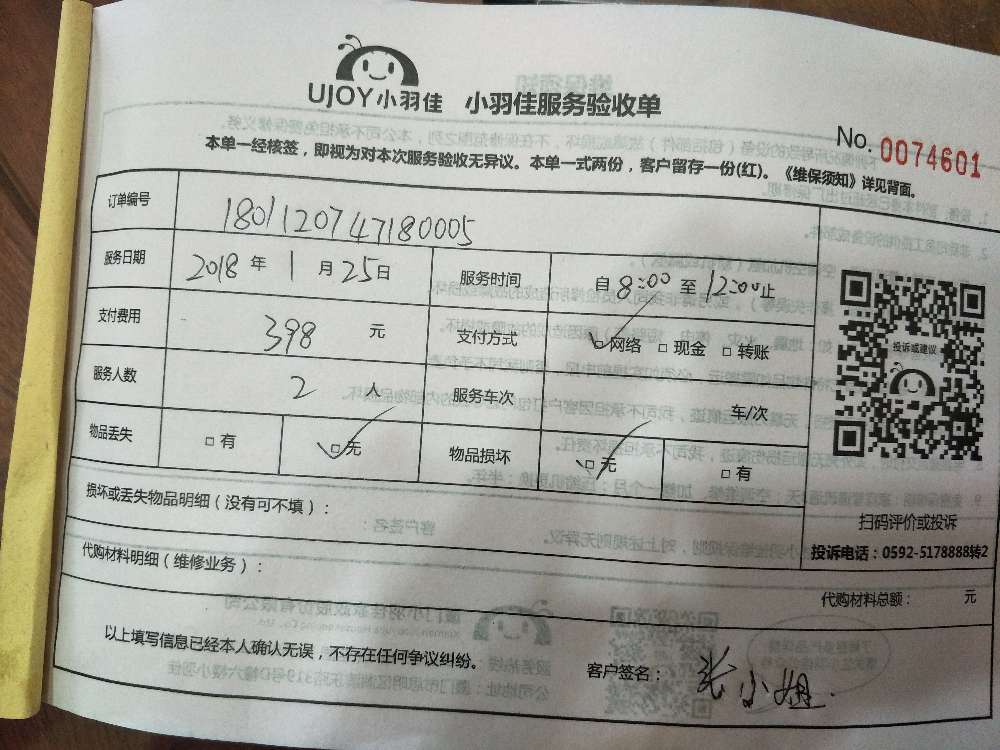 UJOY小羽佳 小羽佳服务验收单
No. 0074601
本单一经核签，即视为对本次服务验收无异议。本单一式两份，客户留存一份(红)。《维保须知》详见背面。
订单编号 1801120747180005
服务日期 2018 年 1 月 25 日 服务时间 自 8:00 至 12:00 止
支付费用 398 元 支付方式 ☑网络 □现金 □转账
投诉或建议
服务人数 2 人 服务车次 车/次
物品丢失 □有 ☑无 物品损坏 ☑无 □有
损坏或丢失物品明细（没有可不填）：
扫码评价或投诉
投诉电话：0592-5178888转2
代购材料明细（维修业务）：
代购材料总额： 元
以上填写信息已经本人确认无误，不存在任何争议纠纷。
客户签名： 张小姐